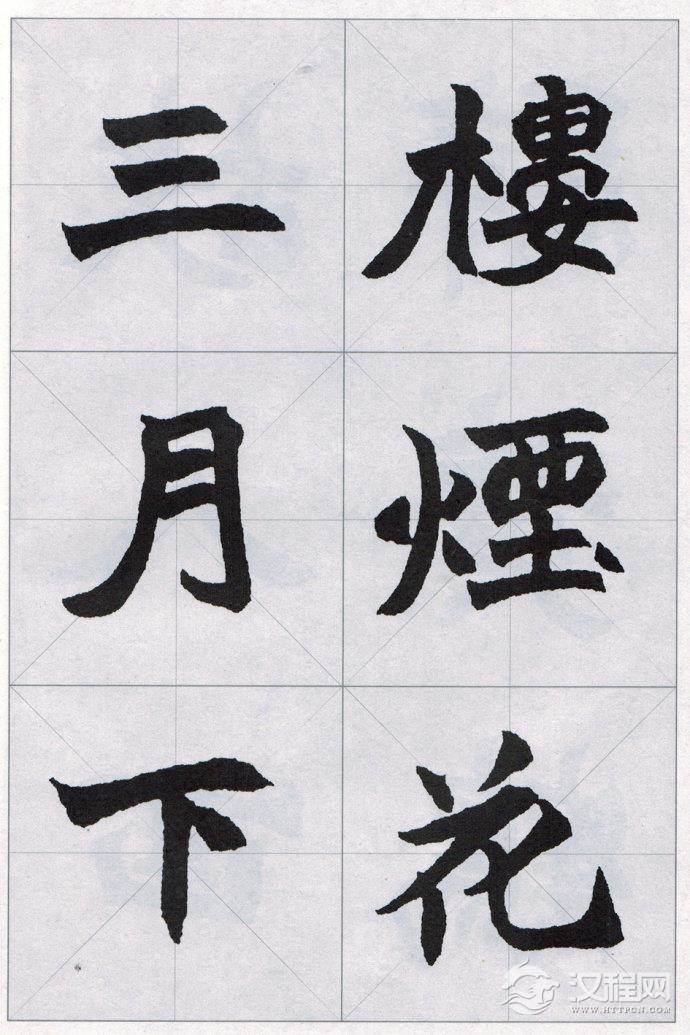 樓煙花
三月下
汉程网
WWW.HTTPCN.COM